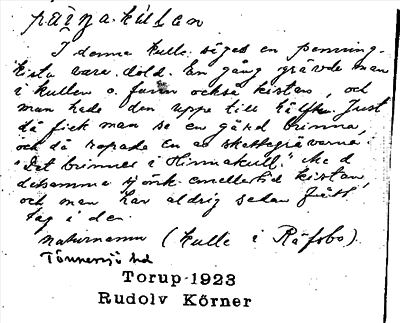 päiŋa.kùllen
I denna kulle säges en penning-
kista vara dold. En gång grävde man
i kullen o. fann också kistan, och
man hade den uppe till hälften. Just
då fick man se en gård brinna,
och då ropade en av skattgrävarna:
"Det brinner i Hinnakull". Med
detsamma sjönk emellertid kistan,
och man har aldrig sedan fått
tag i den.
naturnamn (kulle i Räfsbo).
Tönnersjö hd
Torup-1923
Rudolv Körner